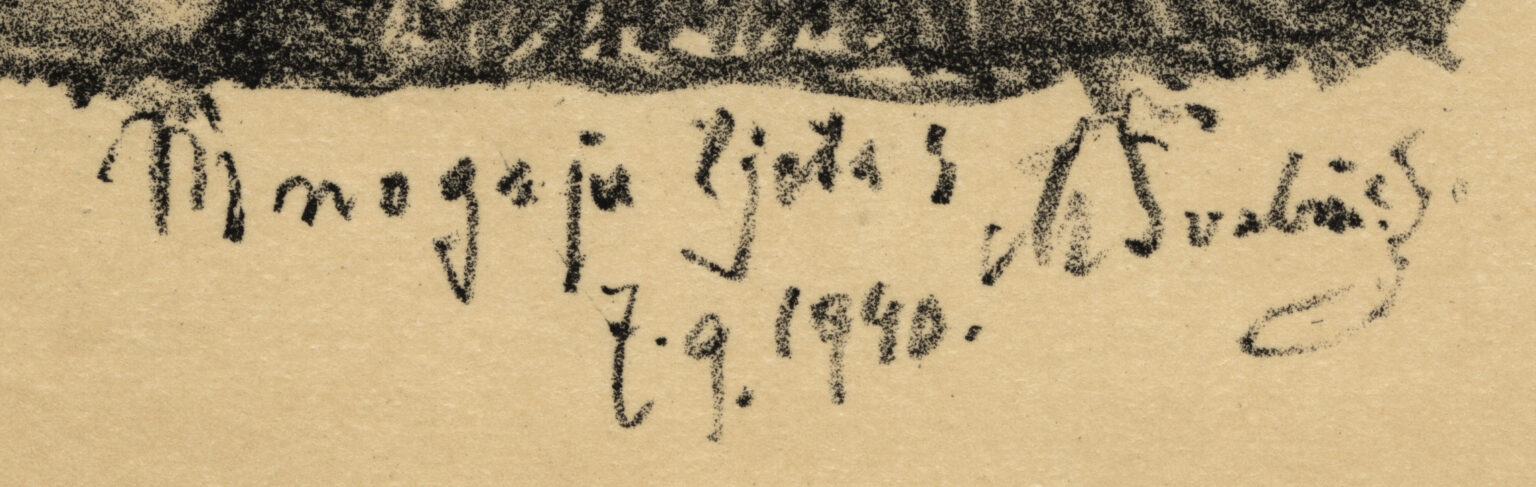 Mnogaja ljeta! M Švabinský
7.9.1940.